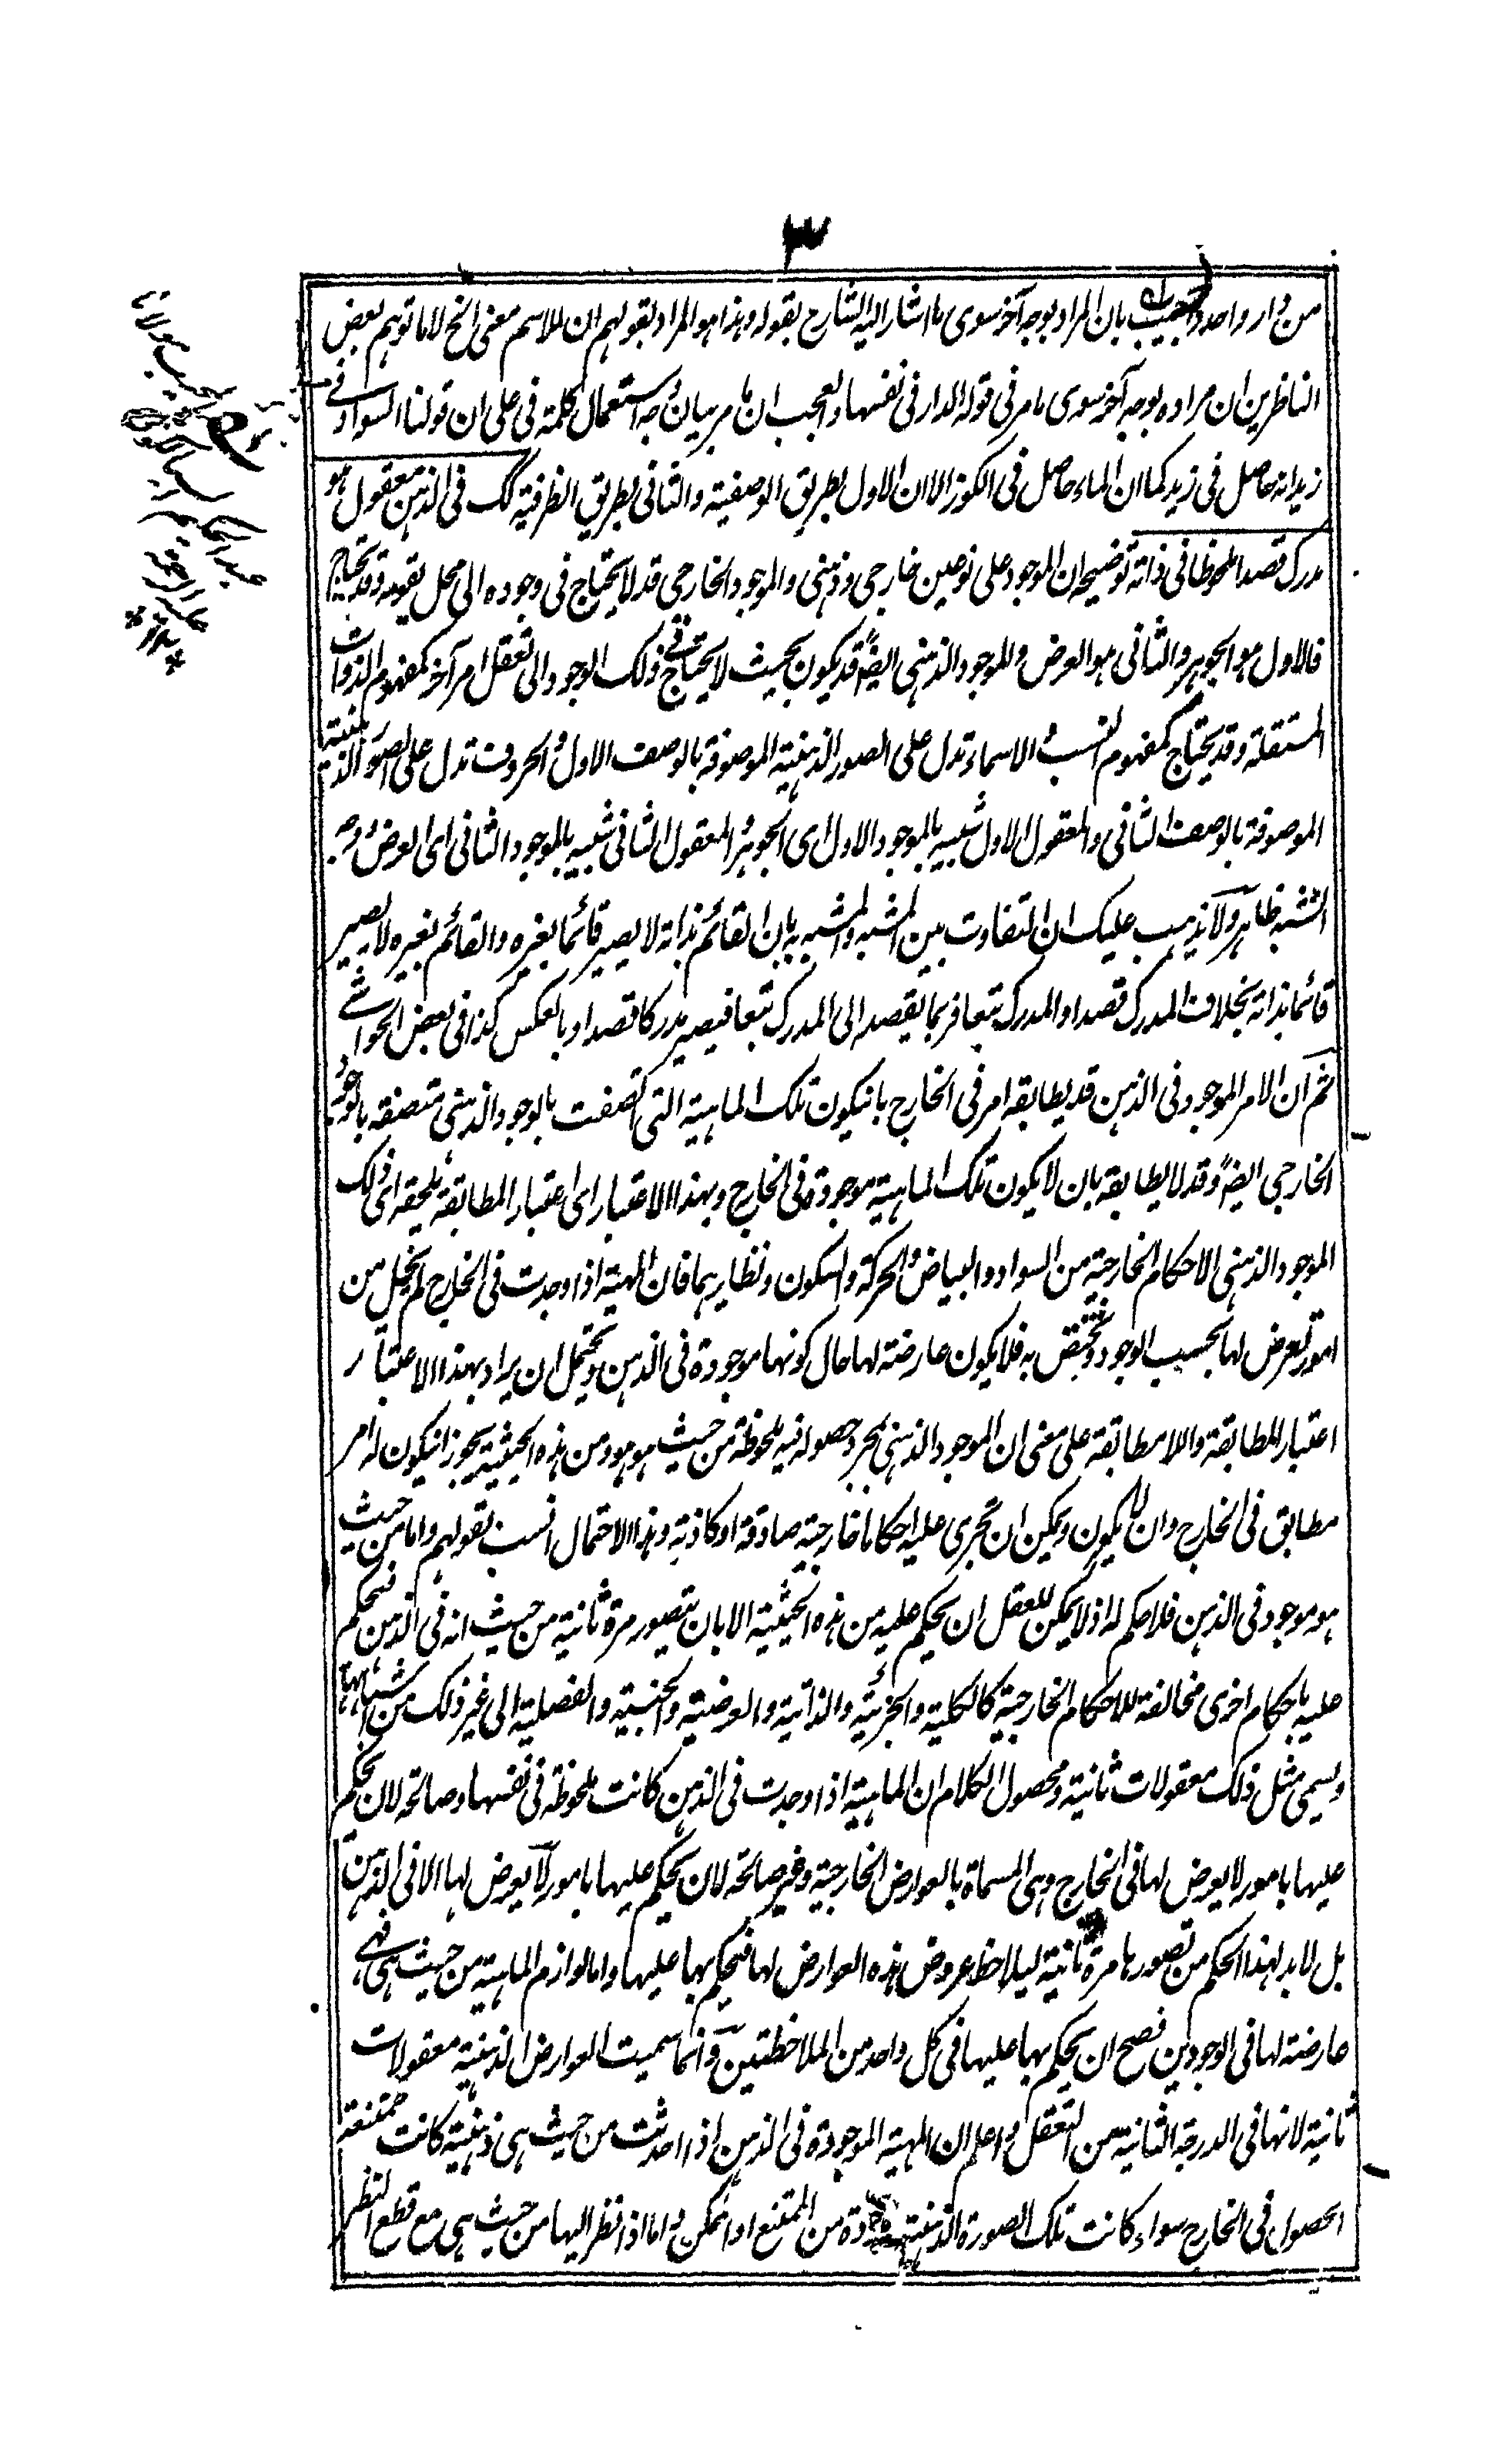 ٣
من دار واحد واجيب بان المراد بوجه آخر سوى ما اشار اليه الشارح بقوله وهذا هو المراد بقولهم ان للاسم معنى الخ لا ما توهم بعض
الناظرين ان مراده بوجه آخر سوى ما مر فى قوله الدار فى نفسها والعجب ان ما مر بيان وجه استعمال كلمة فى على ان قولنا السواد فى
زيد انه حاصل فى زيد كما ان الماء حاصل فى الكوز الا ان الاول بطريق الوصفية والثانى بطريق الظرفية كك فى الذهن معقول هو
مدرك قصدا ملحوظا فى ذاته توضيحه ان الموجود على نوعين خارجى وذهنى والموجود الخارجى قد لا يحتاج فى وجوده الى محل يقومه وقد يحتاج
فالاول هو الجوهر والثانى هو العرض وللموجود الذهنى ايضًا قد يكون بحيث لا يحتاج فى ذلك الوجود الى تعقل امر آخر كمفهوم الذوات
المستقلة وقد يحتاج كمفهوم النسب والاسماء تدل على الصور الذهنية الموصوفة بالوصف الاول والحروف تدل على الصور الذهنية
الموصوفة بالوصف الثانى والمعقول الاول شبيه بالموجود الاول اى الجوهر والمعقول الثانى شبيه بالموجود الثانى اى العرض ووجه
الشبه ظاهر ولا يذهب عليك ان التفاوت بين المشبه والمشبه به بان القائم بذاته لا يصير قائما بغيره والقائم بغيره لا يصير
قائما بذاته بخلاف المدرك قصدا والمدرك تبعا فربما يقصد الى المدرك تبعا فيصير مدركا قصدا وبالعكس كذا فى بعض الحواشے
ثم ان الامر الموجود فى الذهن قد يطابقه امر فى الخارج بان يكون تلك الماهية التى اتصفت بالوجود الذهنى متصفة بالوجود
الخارجى ايضًا وقد لا يطابقه بان لا يكون تلك الماهية موجودة فى الخارج وبهذا الاعتبار اى اعتبار المطابقة يلحقه اى ذلك
الموجود الذهنى الاحكام الخارجية من السواد والبياض والحركة والسكون ونظايرهما فان المهية اذا وجدت فى الخارج لم يخل من
امور تعرض لها بحسب الوجود وتختص به فلا يكون عارضة لها حال كونها موجودة فى الذهن ويحتمل ان يراد بهذا الاعتبار
اعتبار المطابقة واللامطابقة على معنى ان الموجود الذهنى بمجرد حصوله فيه ملحوظة من حيث هو هو ومن هذه الحيثية يجوز ان يكون له امر
مطابق فى الخارج وان لا يكون ويمكن ان تجرى عليه احكاما خارجية صادقة او كاذبة وهذا الاحتمال انسب بقولهم واما من حيث
هو موجود فى الذهن فلا حكم له اذ لا يمكن للعقل ان يحكم عليه من هذه الحيثية الا بان يتصور مرة ثانية من حيث انه فى الذهن فيحكم
عليه باحكام اخرى مخالفة للاحكام الخارجية كالكلية والجزئية والذاتية والعرضية والجنسية والفصلية الى غير ذلك من اشباهها
ويسمى مثل ذلك معقولات ثانية ومحصول الكلام ان الماهية اذا وجدت فى الذهن كانت ملحوظة فى نفسها وصالحة لان يحكم
عليها بامور لا يعرض لها فى الخارج وهى المسماة بالعوارض الخارجية وغير صالحة لان يحكم عليها بامور لا يعرض لها الا فى الذهن
بل لا بد لهذا الحكم من تصورها مرة ثانية ليلاحظ عروض هذه العوارض لها فيحكم بها عليها واما لوازم الماهية من حيث هى فهى
عارضة لها فى الوجودين فصح ان يحكم بها عليها فى كل واحد من الملاحظتين وانما سميت العوارض الذهنية معقولات
ثانية لانها فى الدرجة الثانية من التعقل واعلم ان المهية الموجودة فى الذهن اذا احدثت من حيث هى ذهنية كانت ممتنعة
الحصول فى الخارج سواء كانت تلك الصورة الذهنية من الممتنع او الممكن واما اذا نظر اليها من حيث هى مع قطع النظر
مولانا
عبد الحكيم
السيالكوتى
عليه الرحمة